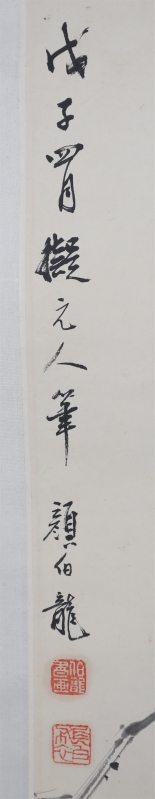 戊子四月擬元人筆 顏伯龍
伯龍書画